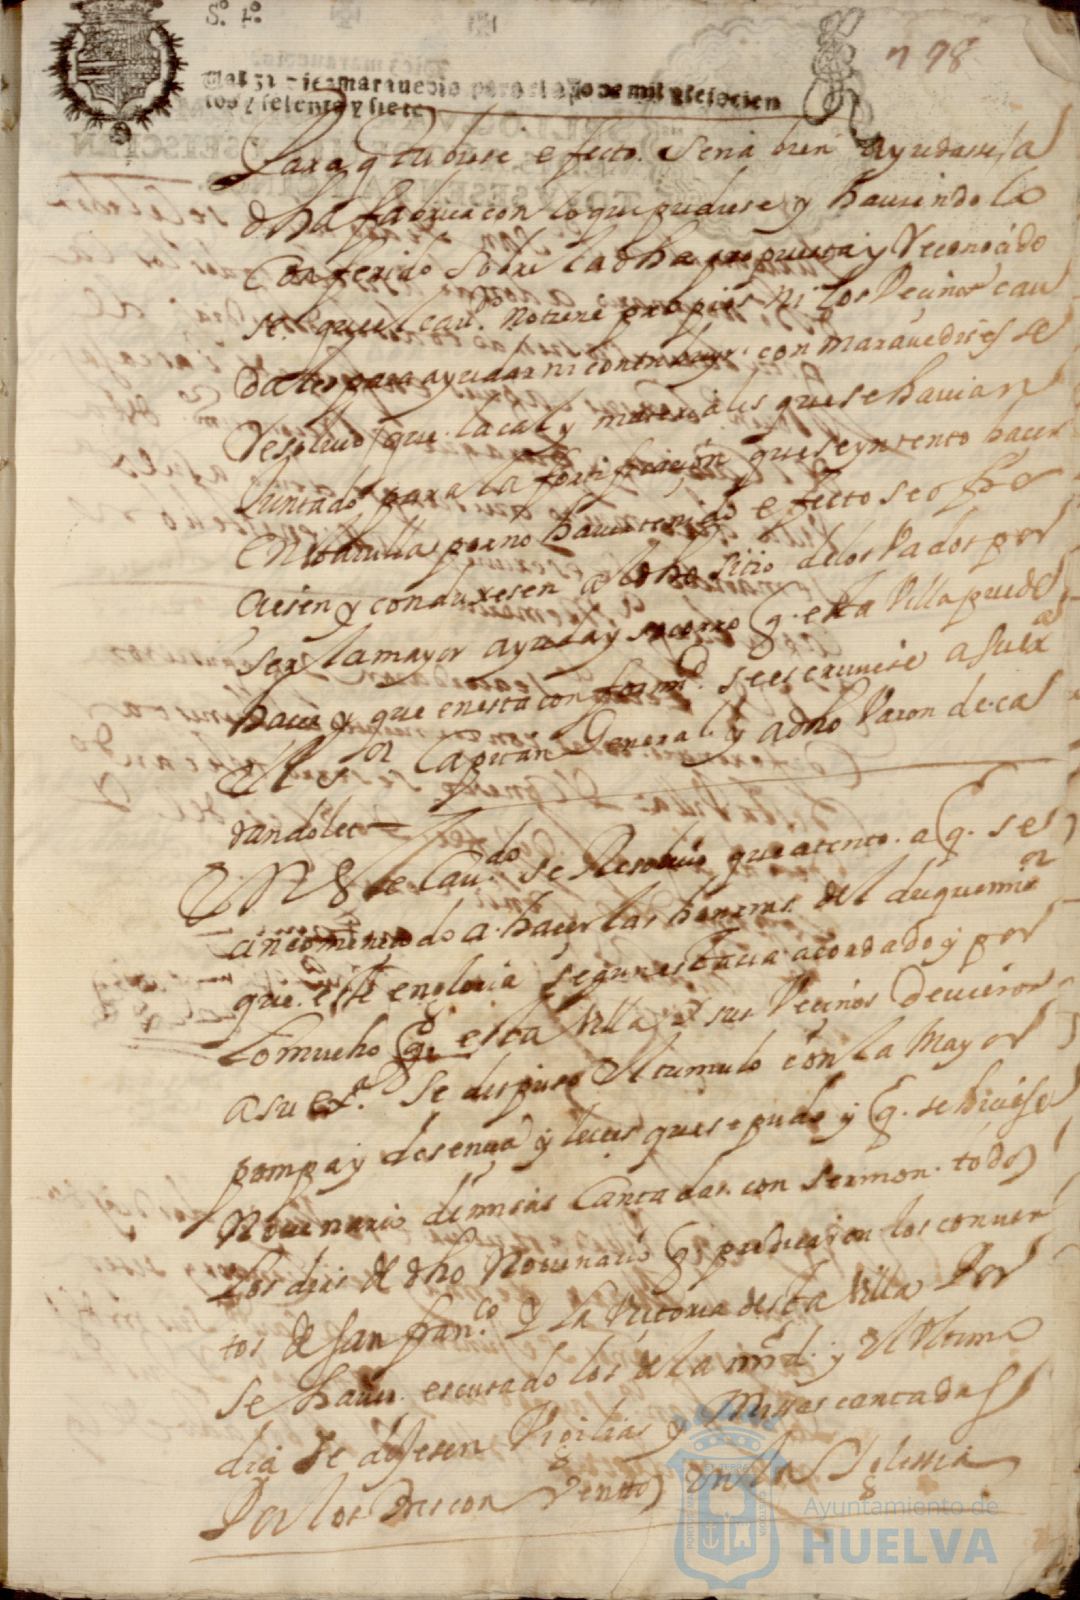 S.º 4.º
798
diez maravedis para el año de mil y seiscien
tos y setenta y siete
Para q tubiese efecto. Sería bien ayudase, a
dha fabrica con lo que pudiese y hauiendo la
conferido sobre la dha propuesta y Reconocido
se que el cau.do no tiene propios ni los Vecinos cau
dales para ayudar ni contribuyr. con marauedises se
Resoluio que. la cal y materiales que se hauian
Juntado, para la fortificación que se yntento hacer
en esta uilla por no hauer tenido efecto se ofre
ciesen y conduxesen al dho sitio de los Vados por
ser la mayor ayuda y socorro q. esta Villa puede
hacer y que en esta conformd. se escriuiese a su ex.a
el s.or Capitan General. y a dho Varon de. cas
randolet
En Este Cau.do se Resoluió que atento. a q. se
a hacer las honrras. del duque mi s.or
que. esté en gloria segun estaua acordado y por
lo mucho q. esta Villa y sus Vecinos deuieron
a su ex.a Se dispuso el tumulo con la Mayor
pompa y desencia y luces que se pudo y q. se hiciese
Nouenario de misas Cantadas. con sermon. todos
los dias de dho Nouenario q. predicaron los conuen
tos de san fran.co y la Victoria desta Villa Por
se hauer. escusado los de la mrd. y el Vltimo
dia se dixesen Vigilias y Missas cantadas
Por los tres conventos en la Yglessia
Ayuntamiento de
HUELVA